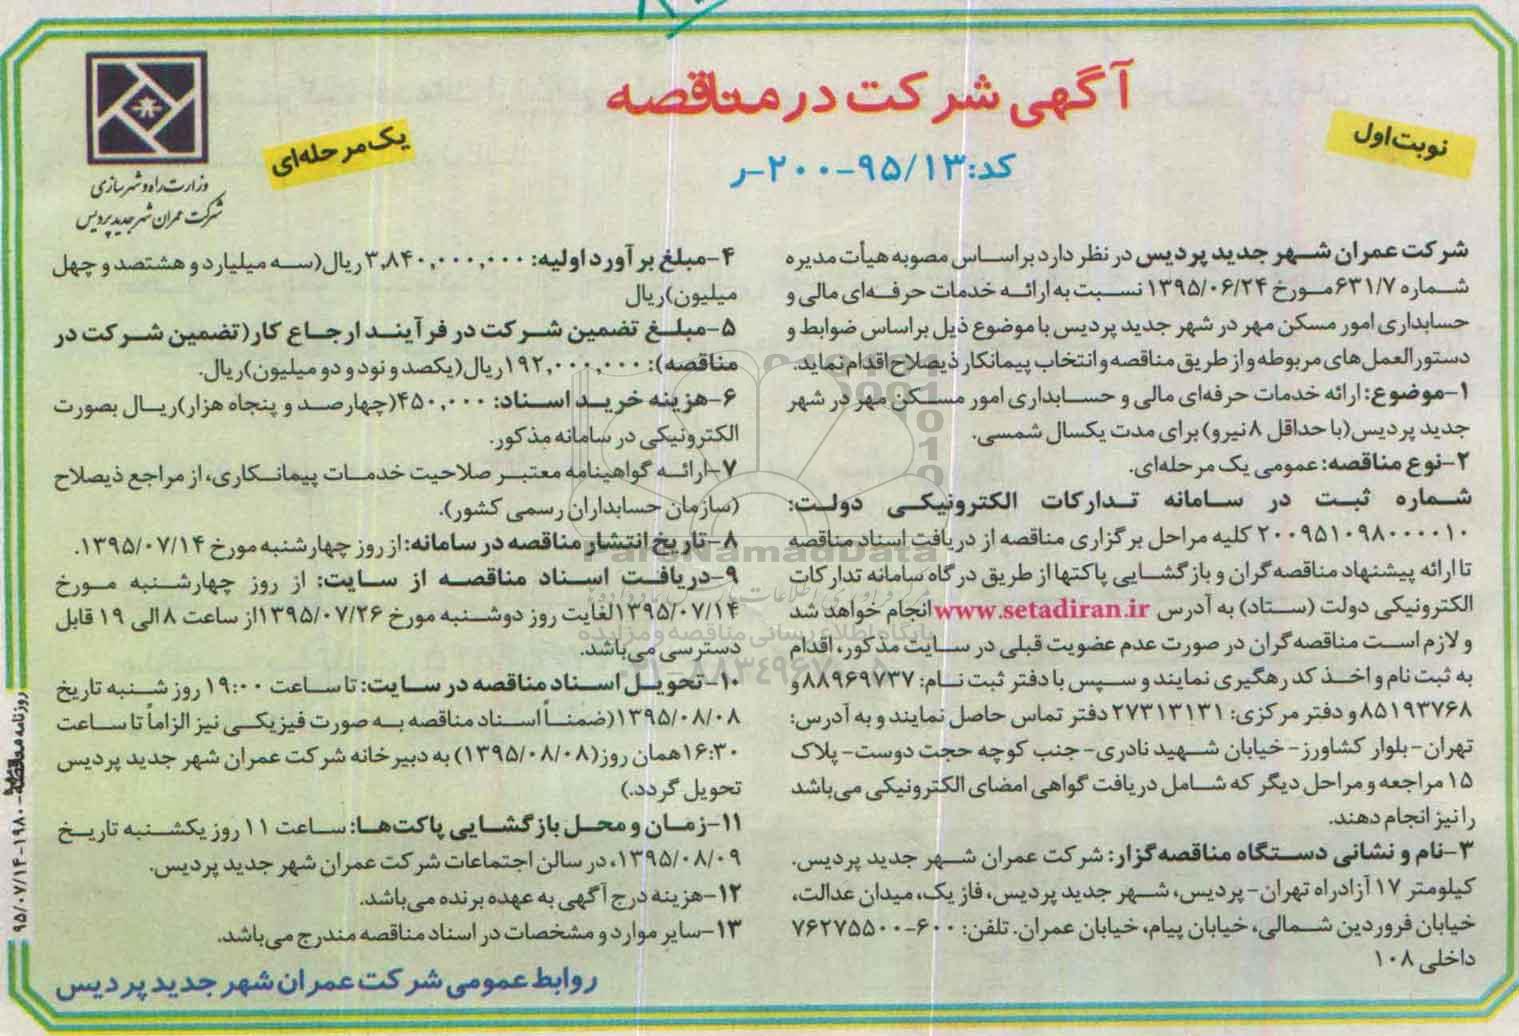 آگهی شرکت در مناقصه
نوبت اول
یک مرحله‌ای
کد: ۹۵/۱۳-۲۰۰-ر
وزارت راه و شهرسازی
شرکت عمران شهر جدید پردیس
شرکت عمران شهر جدید پردیس در نظر دارد براساس مصوبه هیأت مدیره
شماره ۶۳۱/۷ مورخ ۱۳۹۵/۰۶/۲۴ نسبت به ارائه خدمات حرفه‌ای مالی و
حسابداری امور مسکن مهر در شهر جدید پردیس با موضوع ذیل براساس ضوابط و
دستورالعمل‌های مربوطه و از طریق مناقصه و انتخاب پیمانکار ذیصلاح اقدام نماید.
۱-موضوع: ارائه خدمات حرفه‌ای مالی و حسابداری امور مسکن مهر در شهر
جدید پردیس(با حداقل ۸ نیرو) برای مدت یکسال شمسی.
۲-نوع مناقصه: عمومی یک مرحله‌ای.
شماره ثبت در سامانه تدارکات الکترونیکی دولت:
۲۰۰۹۵۱۰۹۸۰۰۰۰۱۰ کلیه مراحل برگزاری مناقصه از دریافت اسناد مناقصه
تا ارائه پیشنهاد مناقصه‌گران و بازگشایی پاکتها از طریق درگاه سامانه تدارکات
الکترونیکی دولت (ستاد) به آدرس www.setadiran.ir انجام خواهد شد
و لازم است مناقصه‌گران در صورت عدم عضویت قبلی در سایت مذکور، اقدام
به ثبت نام و اخذ کد رهگیری نمایند و سپس با دفتر ثبت نام: ۸۸۹۶۹۷۳۷ و
۸۵۱۹۳۷۶۸ و دفتر مرکزی: ۲۷۳۱۳۱۳۱ دفتر تماس حاصل نمایند و به آدرس:
تهران- بلوار کشاورز- خیابان شهید نادری- جنب کوچه حجت دوست- پلاک
۱۵ مراجعه و مراحل دیگر که شامل دریافت گواهی امضای الکترونیکی می‌باشد
را نیز انجام دهند.
۳-نام و نشانی دستگاه مناقصه‌گزار: شرکت عمران شهر جدید پردیس.
کیلومتر ۱۷ آزادراه تهران- پردیس، شهر جدید پردیس، فاز یک، میدان عدالت،
خیابان فروردین شمالی، خیابان پیام، خیابان عمران. تلفن: ۶۰۰-۷۶۲۷۵۵۰۰
داخلی ۱۰۸
۴-مبلغ برآورد اولیه: ۳,۸۴۰,۰۰۰,۰۰۰ ریال(سه میلیارد و هشتصد و چهل
میلیون)ریال
۵-مبلغ تضمین شرکت در فرآیند ارجاع کار(تضمین شرکت در
مناقصه): ۱۹۲,۰۰۰,۰۰۰ ریال(یکصد و نود و دو میلیون)ریال.
۶-هزینه خرید اسناد: ۴۵۰,۰۰۰(چهارصد و پنجاه هزار)ریال بصورت
الکترونیکی در سامانه مذکور.
۷-ارائه گواهینامه معتبر صلاحیت خدمات پیمانکاری، از مراجع ذیصلاح
(سازمان حسابداران رسمی کشور).
۸-تاریخ انتشار مناقصه در سامانه: از روز چهارشنبه مورخ ۱۳۹۵/۰۷/۱۴.
۹-دریافت اسناد مناقصه از سایت: از روز چهارشنبه مورخ
۱۳۹۵/۰۷/۱۴ لغایت روز دوشنبه مورخ ۱۳۹۵/۰۷/۲۶ از ساعت ۸ الی ۱۹ قابل
دسترسی می‌باشد.
۱۰-تحویل اسناد مناقصه در سایت: تا ساعت ۱۹:۰۰ روز شنبه تاریخ
۱۳۹۵/۰۸/۰۸(ضمناً اسناد مناقصه به صورت فیزیکی نیز الزاماً تا ساعت
۱۶:۳۰ همان روز(۱۳۹۵/۰۸/۰۸) به دبیرخانه شرکت عمران شهر جدید پردیس
تحویل گردد.)
۱۱-زمان و محل بازگشایی پاکت‌ها: ساعت ۱۱ روز یکشنبه تاریخ
۱۳۹۵/۰۸/۰۹، در سالن اجتماعات شرکت عمران شهر جدید پردیس.
۱۲-هزینه درج آگهی به عهده برنده می‌باشد.
۱۳-سایر موارد و مشخصات در اسناد مناقصه مندرج می‌باشد.
روابط عمومی شرکت عمران شهر جدید پردیس
روزنامه مناقصه - ۱۹۸۰ - ۹۵/۰۷/۱۴
ParsNamadData
پایگاه اطلاع رسانی مناقصه و مزایده